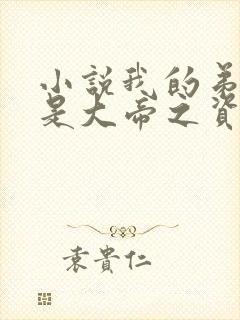 小說我的弟
是大帝之資
袁貴仁